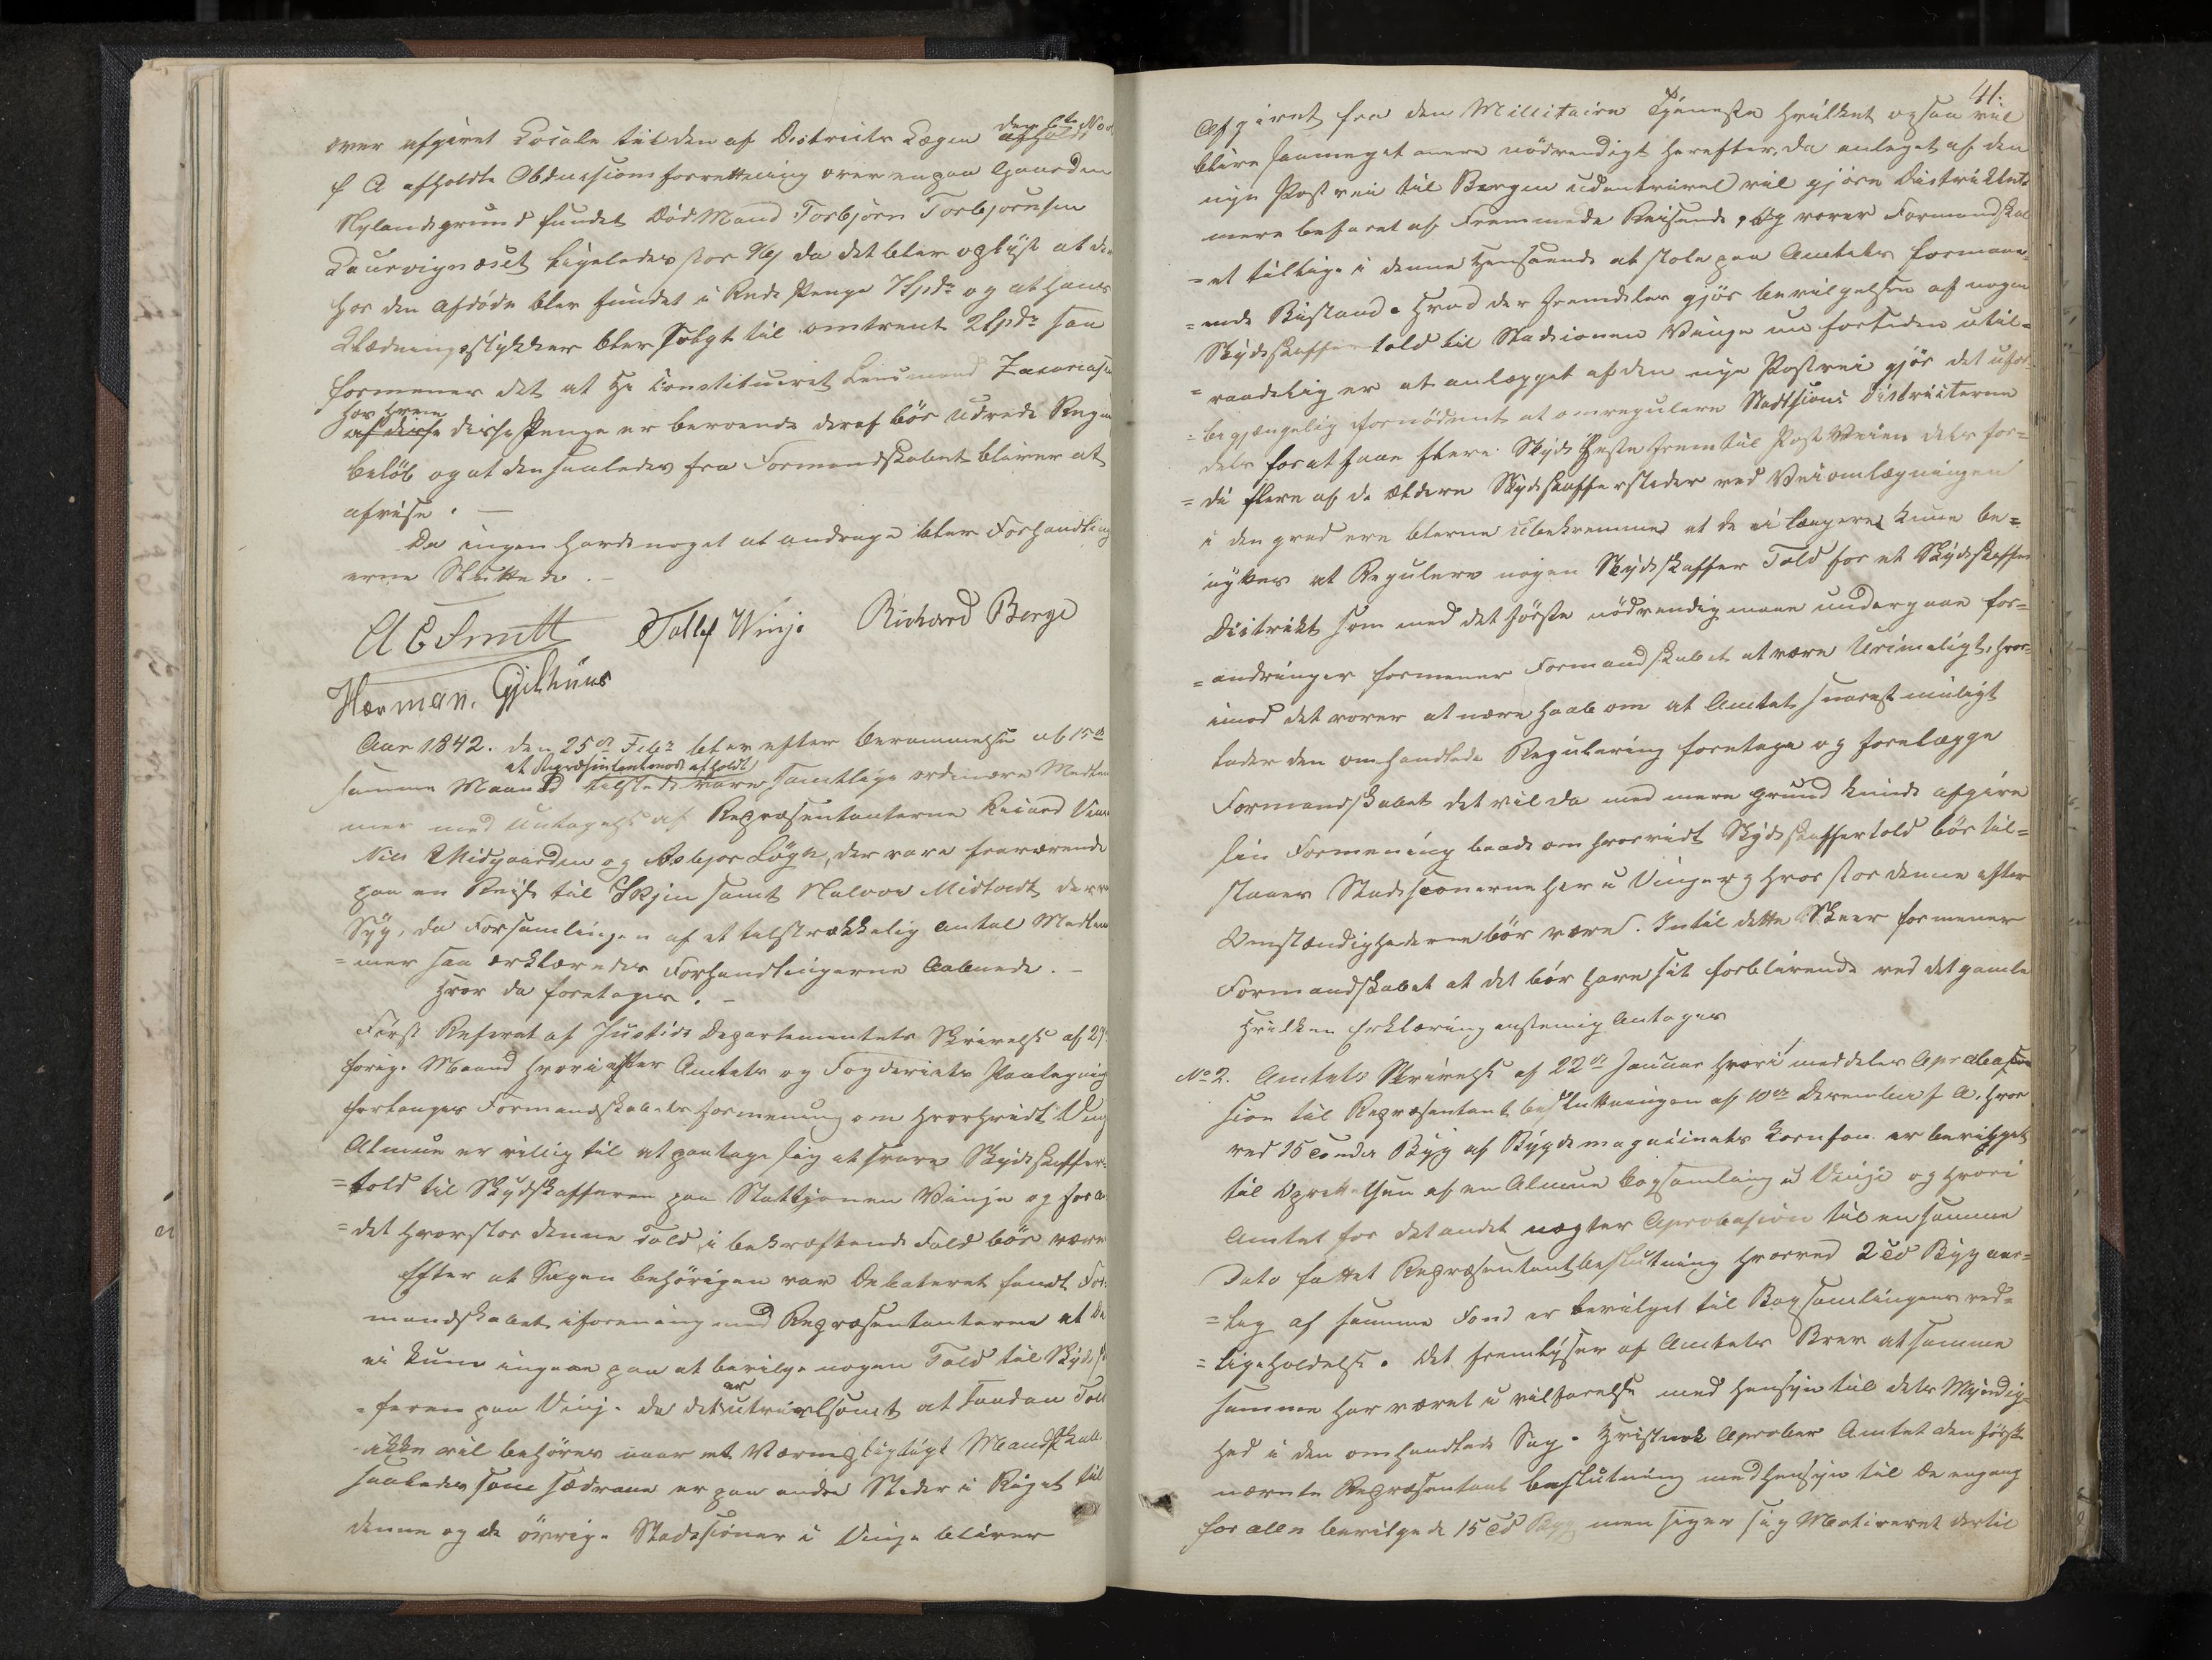 over afgivet Locale til den af Districts Lægen den 6te Nov
f A afholdte Obductionsforrettning over en paa Gaarden
Nylandsgrund fundet død Mand Torbjørn Torbjørnsen
ligeledes stor 96 da det blev oplyst at der
hos den Afdøde blev fundet i Rede Penge 7 Spd og at hans
Klædningsstykker blev solgt til omtrent 2 Spd saa
formener det at Hr Constitueret Lensmand Zacariasen
hos hvem
disse Penge er beroende deraf bør udrede Regnings
beløb og at den saaledes fra Formandskabet bliver at
afvise. —
Da ingen havde noget at andrage blev Forhandling
erne Sluttede. —
A E Smitt Tollef Winje Richard Berge
Herman. Gjelhuus
Aar 1842. den 25de Febr blev efter Berammelse af 15de
at Repræsentantmøde afholdt
samme Maaned tilstede vare samtlige ordinære Medlem
mer med Untagelse af Repræsentanterne Reiard Vinje
Niels Midgaarden og Asbjør Løgn, der vare fraværende
paa en Reise til Skien samt Halvor Mistvedt der var
Syg, da Forsamlingen af et tilstrækkelig antal Medlem
=mer saa erklæredes Forhandlingerne Aabnede. —
Hvor da foretoges. —
Først Referat af Justits Departementets Skrivelse af 29
forige Maaned hvori efter Amtets og Fogderiets Paalegning
forlanges Formandskabets formening om hvorhvidt Vinje
Almue er villig til at paatage sig at svare Skydsskaffer=
=told til Skydsskafferen paa Stattjonen Vinje og for a
=det hvorstor denne Told i bekræftende Fald bør være
Efter at Sagen behørigen var Debateret fandt For
mandskabet iforening med Repræsentanterne at de
ei kunne ingaae paa at bevilge nogen Told til Skydss
=feren paa Vinje da det er utvivlsomt at saadan Told
ikke vil behøves naar et Værnepligtigt Mandskab
saaledes som sædvane er paa andre Steder i Riget til
denne og de øvrige Stadsioner i Vinje bliver
41.
Afgivet fra den Millitaire Tjeneste hvilket ogsaa vil
blive saameget mere nødvendigt herefter, da anleget af den
nye Postvei til Bergen udentvivel vil gjøre Districktet
mere befaret af Fremmede Reisende, og vover Formandskab
=et tillige i denne Henseende at stole paa Amtets formaae
=ende Bistand. Hvad der fremdeles gjør bevilgelsen af nogen
Skydsskaffertold til Stadsionen Vinje nu fortiden util=
=raadelig er at anlægget af den nye Postvei gjør det ufor
=begjængelig fornødent at omregulere Stadtsions Districterne
dels forat faae flere Skyds Heste frem til Post Veien dels for=
=di flere af de ældere Skydsskaffersteder ved Veiomlægningen
i den grad ere blevne ubekvemme at de ei længere kune be=
nyttes at Regulere nogen Skydsskaffer Told for et Skydsskaffer
District som med det første nødvendig maae undergaae for=
=andringer formener Formandskabet at være Urimeligt, hvor=
imod det vover at nære Haab om at Amtet snarest muligt
lader den omhandlede Regulering foretage og forelægge
Formandskabet det vil da med mere grund kunde afgive
sin Formening baade om hvorvidt Skydsskaffertold bør til=
staaes Stadsionerne her i Vinje og hvor stor denne efter
Omstændighederne bør være. Intil dette Skeer formener
Formandskabet at det bør have sit forblivende ved det gamle
Hvilken Erklæring enstemig Antoges
No 2. Amtets Skrivelse af 22de Januar hvori meddeles Aprobation
sion til Repræsentant beslutningen af 10de December f A. hvor
ved 15 Tønder Byg af Bygdemagasinets Kornfon er bevilget
til Oprettelsen af en Almue bogsamling i Vinje og hvori
Amtet for det andet nægter Aprobasion til en samme
Dato fattet Repræsentantbeslutning hvorved 2 Td Byg aar=
=lig af samme Fond er bevilget til Bogsamlingens ved=
=ligeholdelse. Det fremlyser af Amtets Brev at samme
samme har været i vilfarelse med hensyn til dets Myndig=
hed i den omhandlede Sag. Hvistnok Aprober Amtet den først
nævnte Repræsentant beslutning med hensyn til de engang
for alle bevilgede 15 Td Byg men siger sig Motiveret dertil